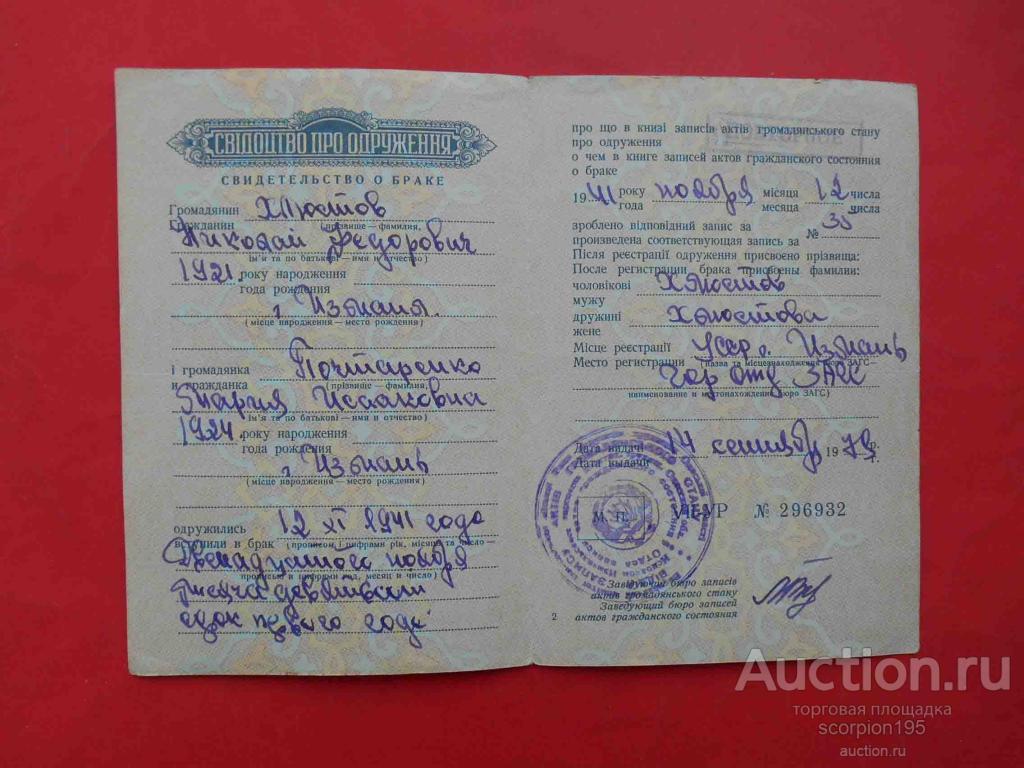 СВІДОЦТВО ПРО ОДРУЖЕННЯ
СВИДЕТЕЛЬСТВО О БРАКЕ
Громадянин Хлюстов
Гражданин (прізвище — фамилия,
Николай Федорович
ім'я та по батькові — имя и отчество)
1921 року народження
года рождения
г Измаил
(місце народження — место рождения)
і громадянка Почтаренко
и гражданка (прізвище — фамилия,
Мария Исааковна
ім'я та по батькові — имя и отчество)
1924 року народження
года рождения
г. Измаил
(місце народження — место рождения)
одружились 12 XI 1941 года
вступили в брак (прописом і цифрами рік, місяць та число —
Двенадцатого ноября
прописью и цифрами год, месяц и число)
тысяча девятьсот
сорок первого года
про що в книзі записів актів громадянського стану
про одруження
о чем в книге записей актов гражданского состояния
о браке
ПОВТОРНЕ
1941 року ноября місяця 12 числа
года месяца числа
зроблено відповідний запис за № 35
произведена соответствующая запись за
Після реєстрації одруження присвоєно прізвища:
После регистрации брака присвоены фамилии:
чоловікові Хлюстов
мужу
дружині Хлюстова
жене
Місце реєстрації УССР г. Измаил
Место регистрации (назва та місцезнаходження бюро ЗАГС —
Гор отд ЗАГС
наименование и местонахождение бюро ЗАГС)
Дата видачі 14 сентября 1979 р.
Дата выдачи г.
М. П. УЄ-УР № 296932
Завідуючий бюро записів
актів громадянського стану
Заведующий бюро записей
2 актов гражданского состояния
Auction.ru
торговая площадка
scorpion195
auction.ru